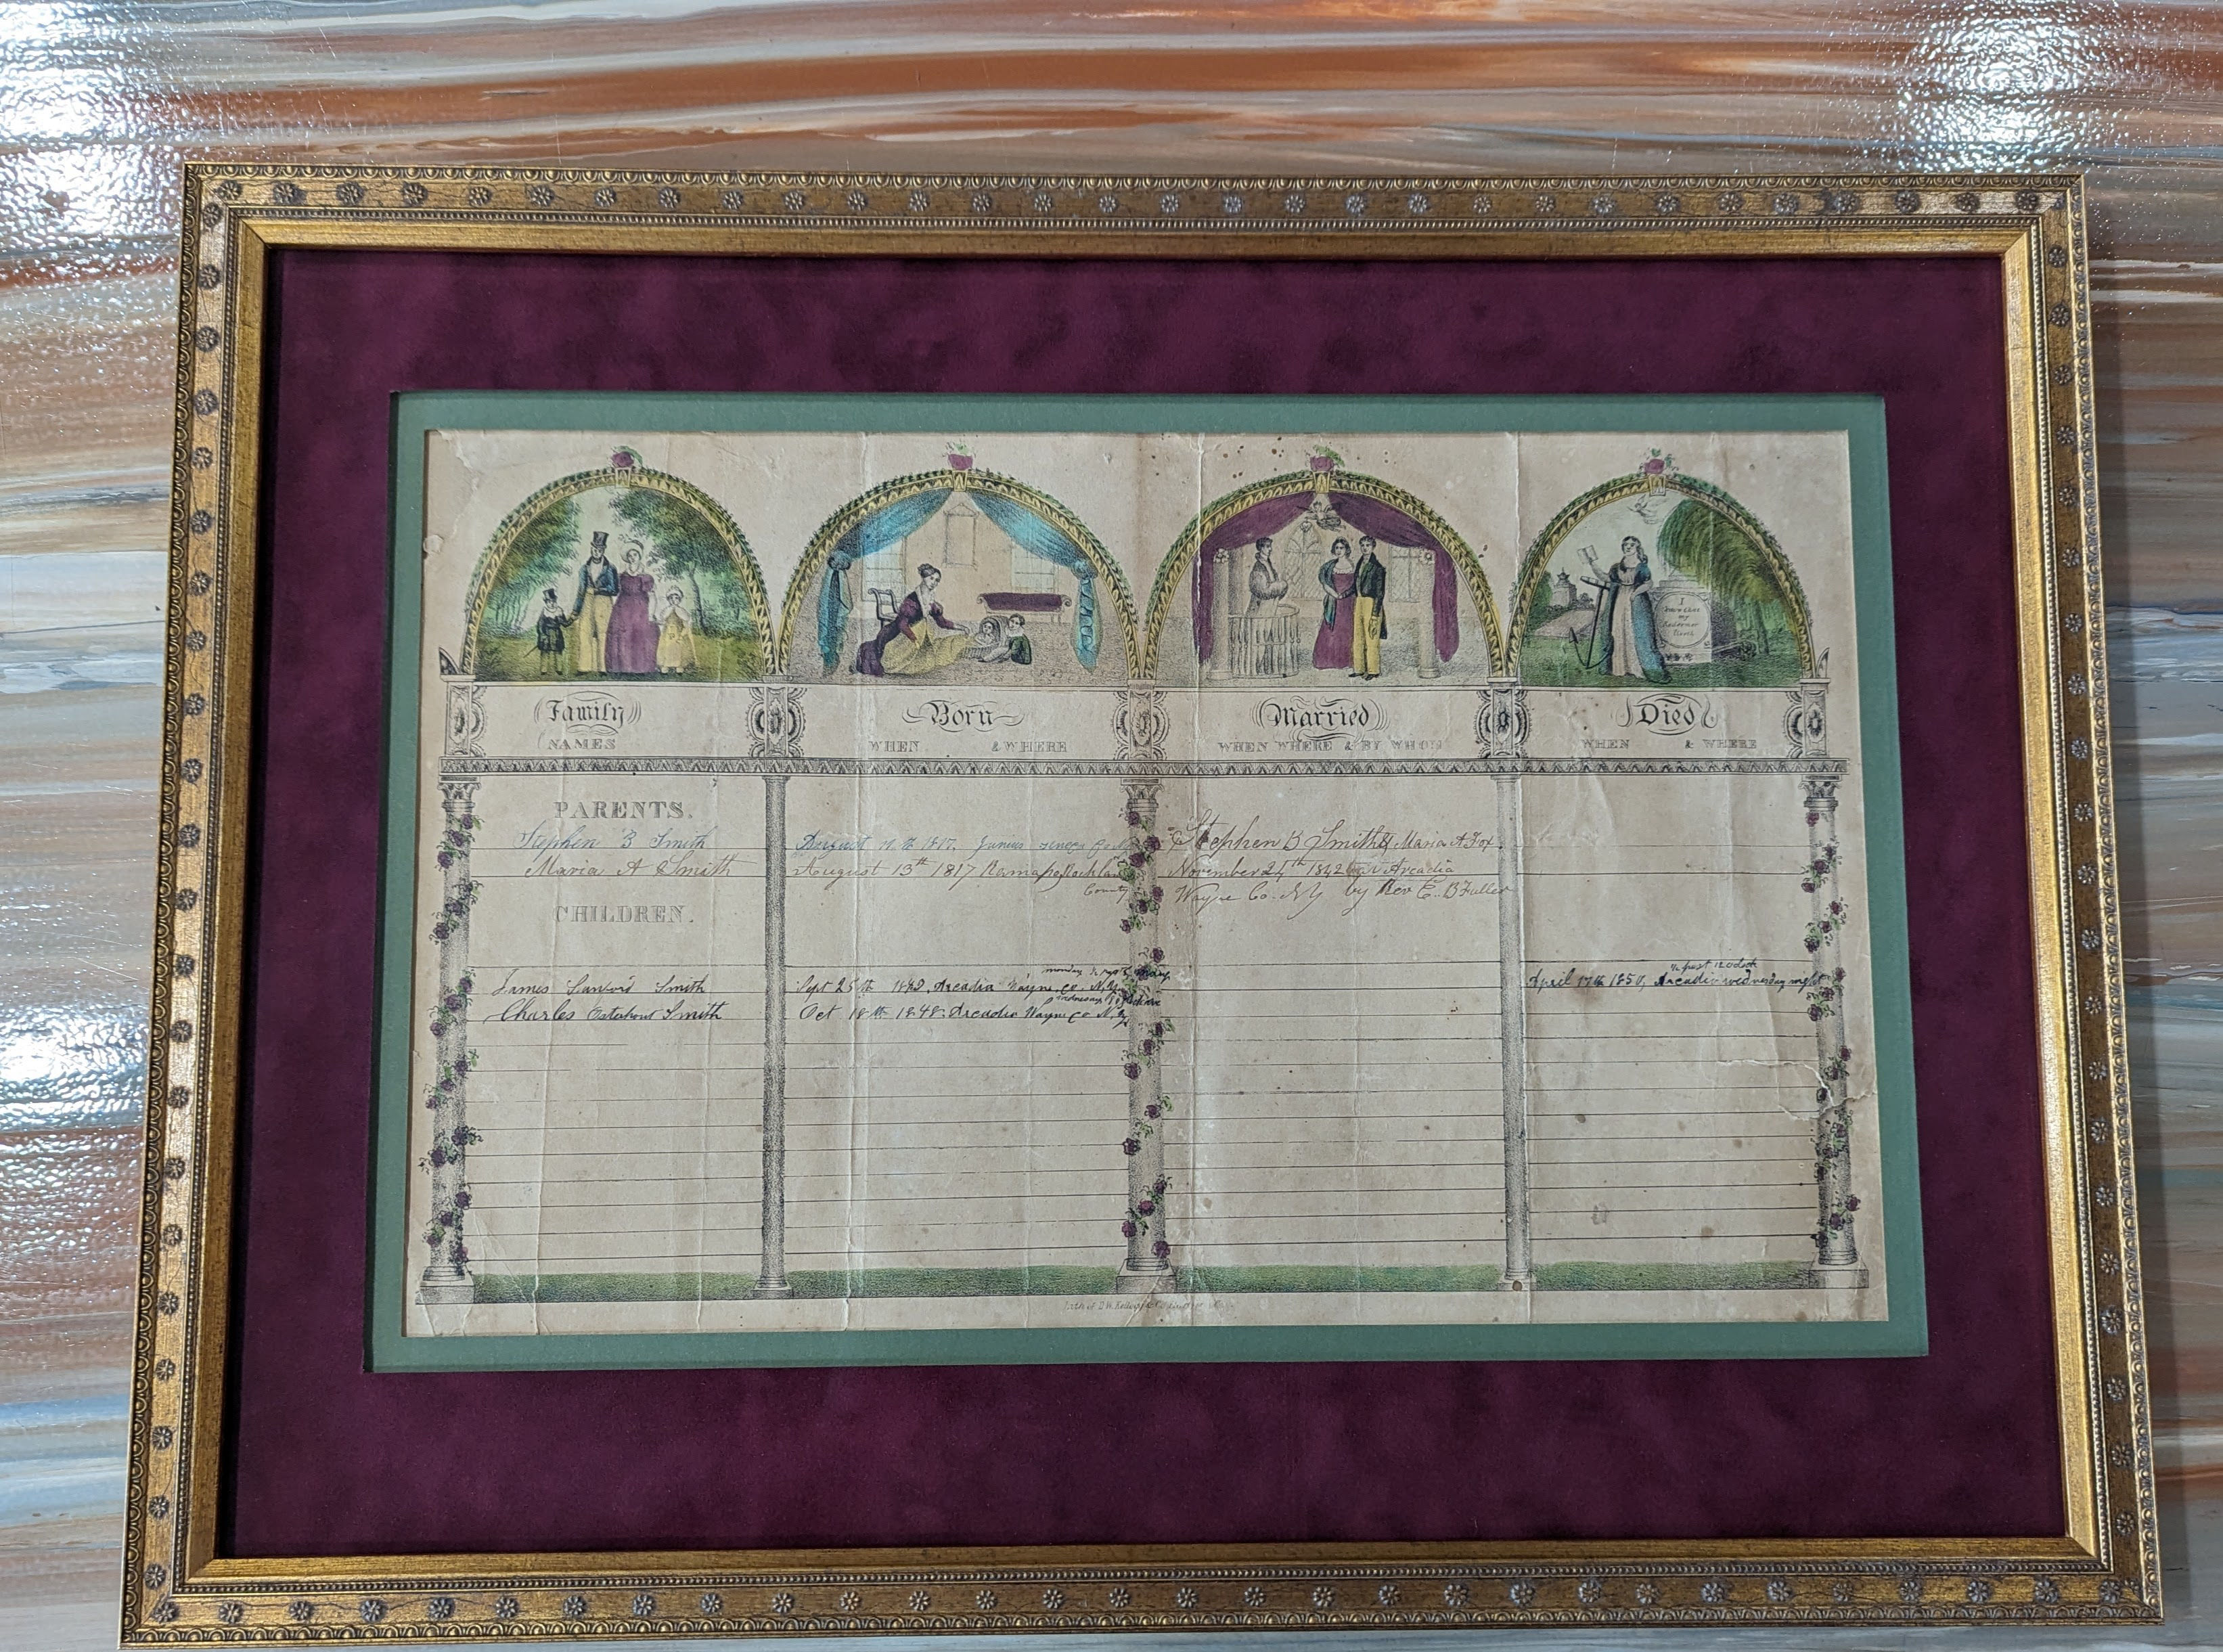 I
know that
my
Redeemer
liveth
Family
NAMES
Born
WHEN & WHERE
Married
WHEN WHERE & BY WHOM
Died
WHEN & WHERE
PARENTS.
Stephen B Smith
August 1817. Junius
Stephen B Smith & Maria A Fox
Maria A Smith
August 13th 1817 Ramapo Rockland
County
November 24th 1842 Arcadia
Wayne Co. N Y by Rev E. B Fuller
CHILDREN.
monday
½ past 12 oclock
James Smith
Sept 25th Arcadia Wayne, co. N.Y
April 17th 1850, Arcadia wednesday night
wednesday
Charles Smith
Oct 18th 1848. Arcadia Wayne co N.Y
Lith of D.W. Kellogg & Co